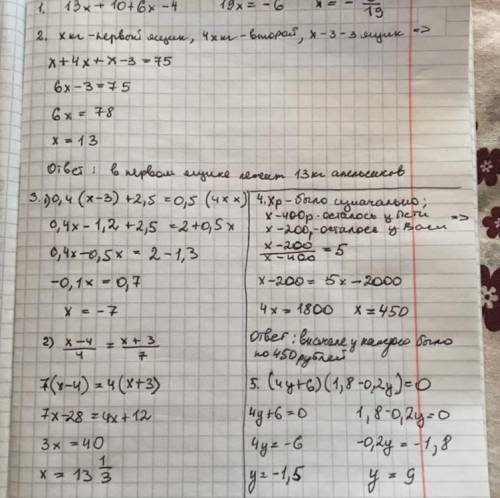 1. 13x + 10 + 6x - 4 19x = -6 x = -6/19
2. x кг - первой ящик, 4x кг - второй, x - 3 - 3 ящик =>
x + 4x + x - 3 = 75
6x - 3 = 75
6x = 78
x = 13
Ответ: в первом ящике лежит 13 кг апельсинов
3. 1) 0,4 (x-3) + 2,5 = 0,5 (4xx)
0,4x - 1,2 + 2,5 = 2 + 0,5x
0,4x - 0,5x = 2 - 1,3
-0,1x = 0,7
x = -7
2) (x-4)/4 = (x+3)/7
7(x-4) = 4(x+3)
7x - 28 = 4x + 12
3x = 40
x = 13 1/3
4. Xр - было изначально;
x - 400р - осталось у Пети =>
x - 200, - осталось у Васи
(x-200)/(x-400) = 5
x - 200 = 5x - 2000
4x = 1800 x = 450
Ответ: вначале у каждого было
по 450 рублей
5. (4y+6)(1,8-0,2y) = 0
4y + 6 = 0 1,8 - 0,2y = 0
4y = -6 -0,2y = -1,8
y = -1,5 y = 9